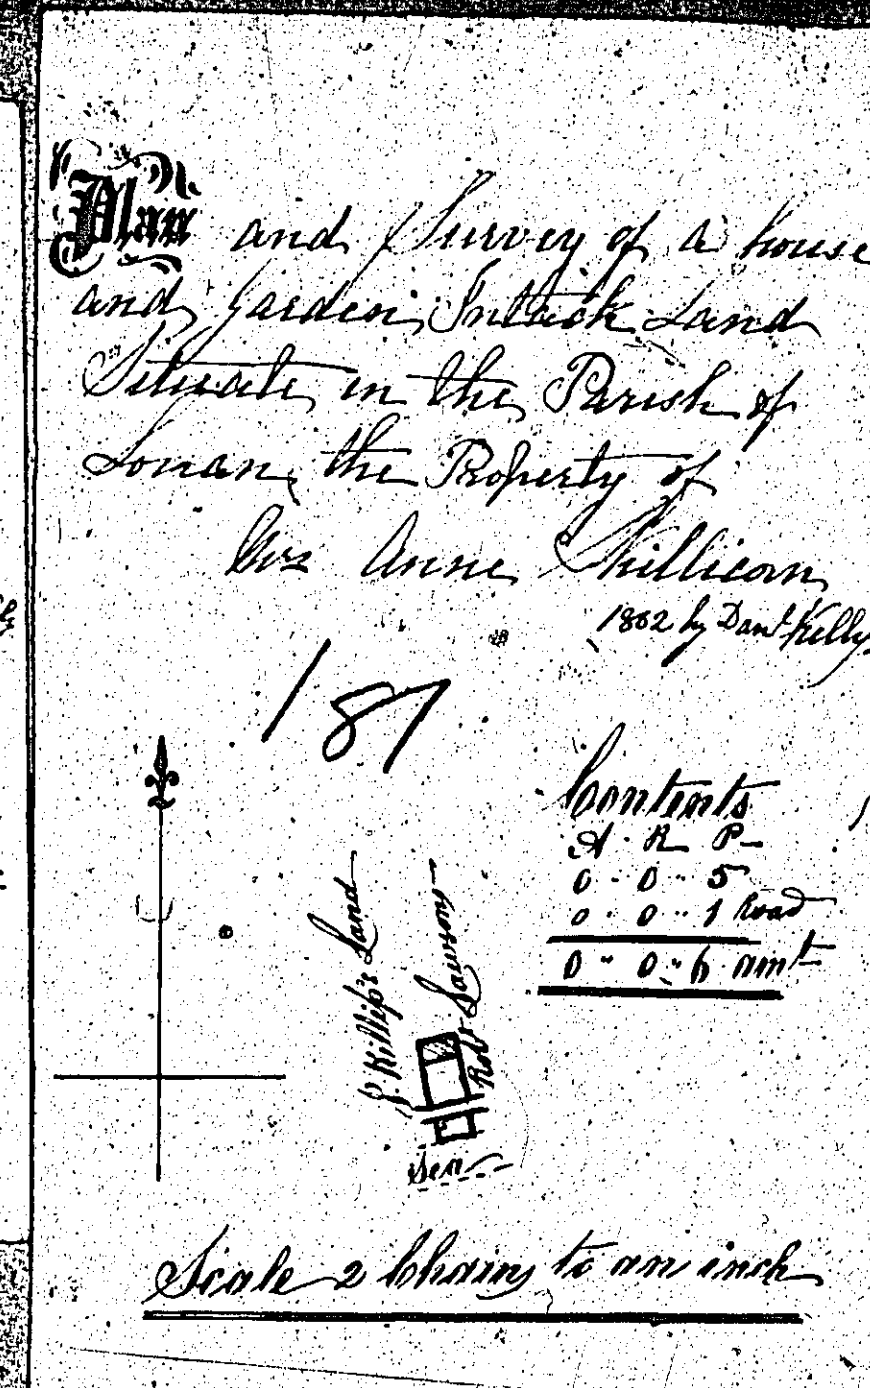 Plan and Survey of a house
and Garden, Intack Land
Situate in the Parish of
Lonan, the Property of
Mrs Anne Skillicorn
1862 by Danl Kelly
187
Contents
A - R - P -
0 - 0 - 5
0 - 0 - 1 Road
0 - 0 - 6 amt
J. Killip's Land
Robt Lawsons
Sea
Scale 2 Chains to an inch